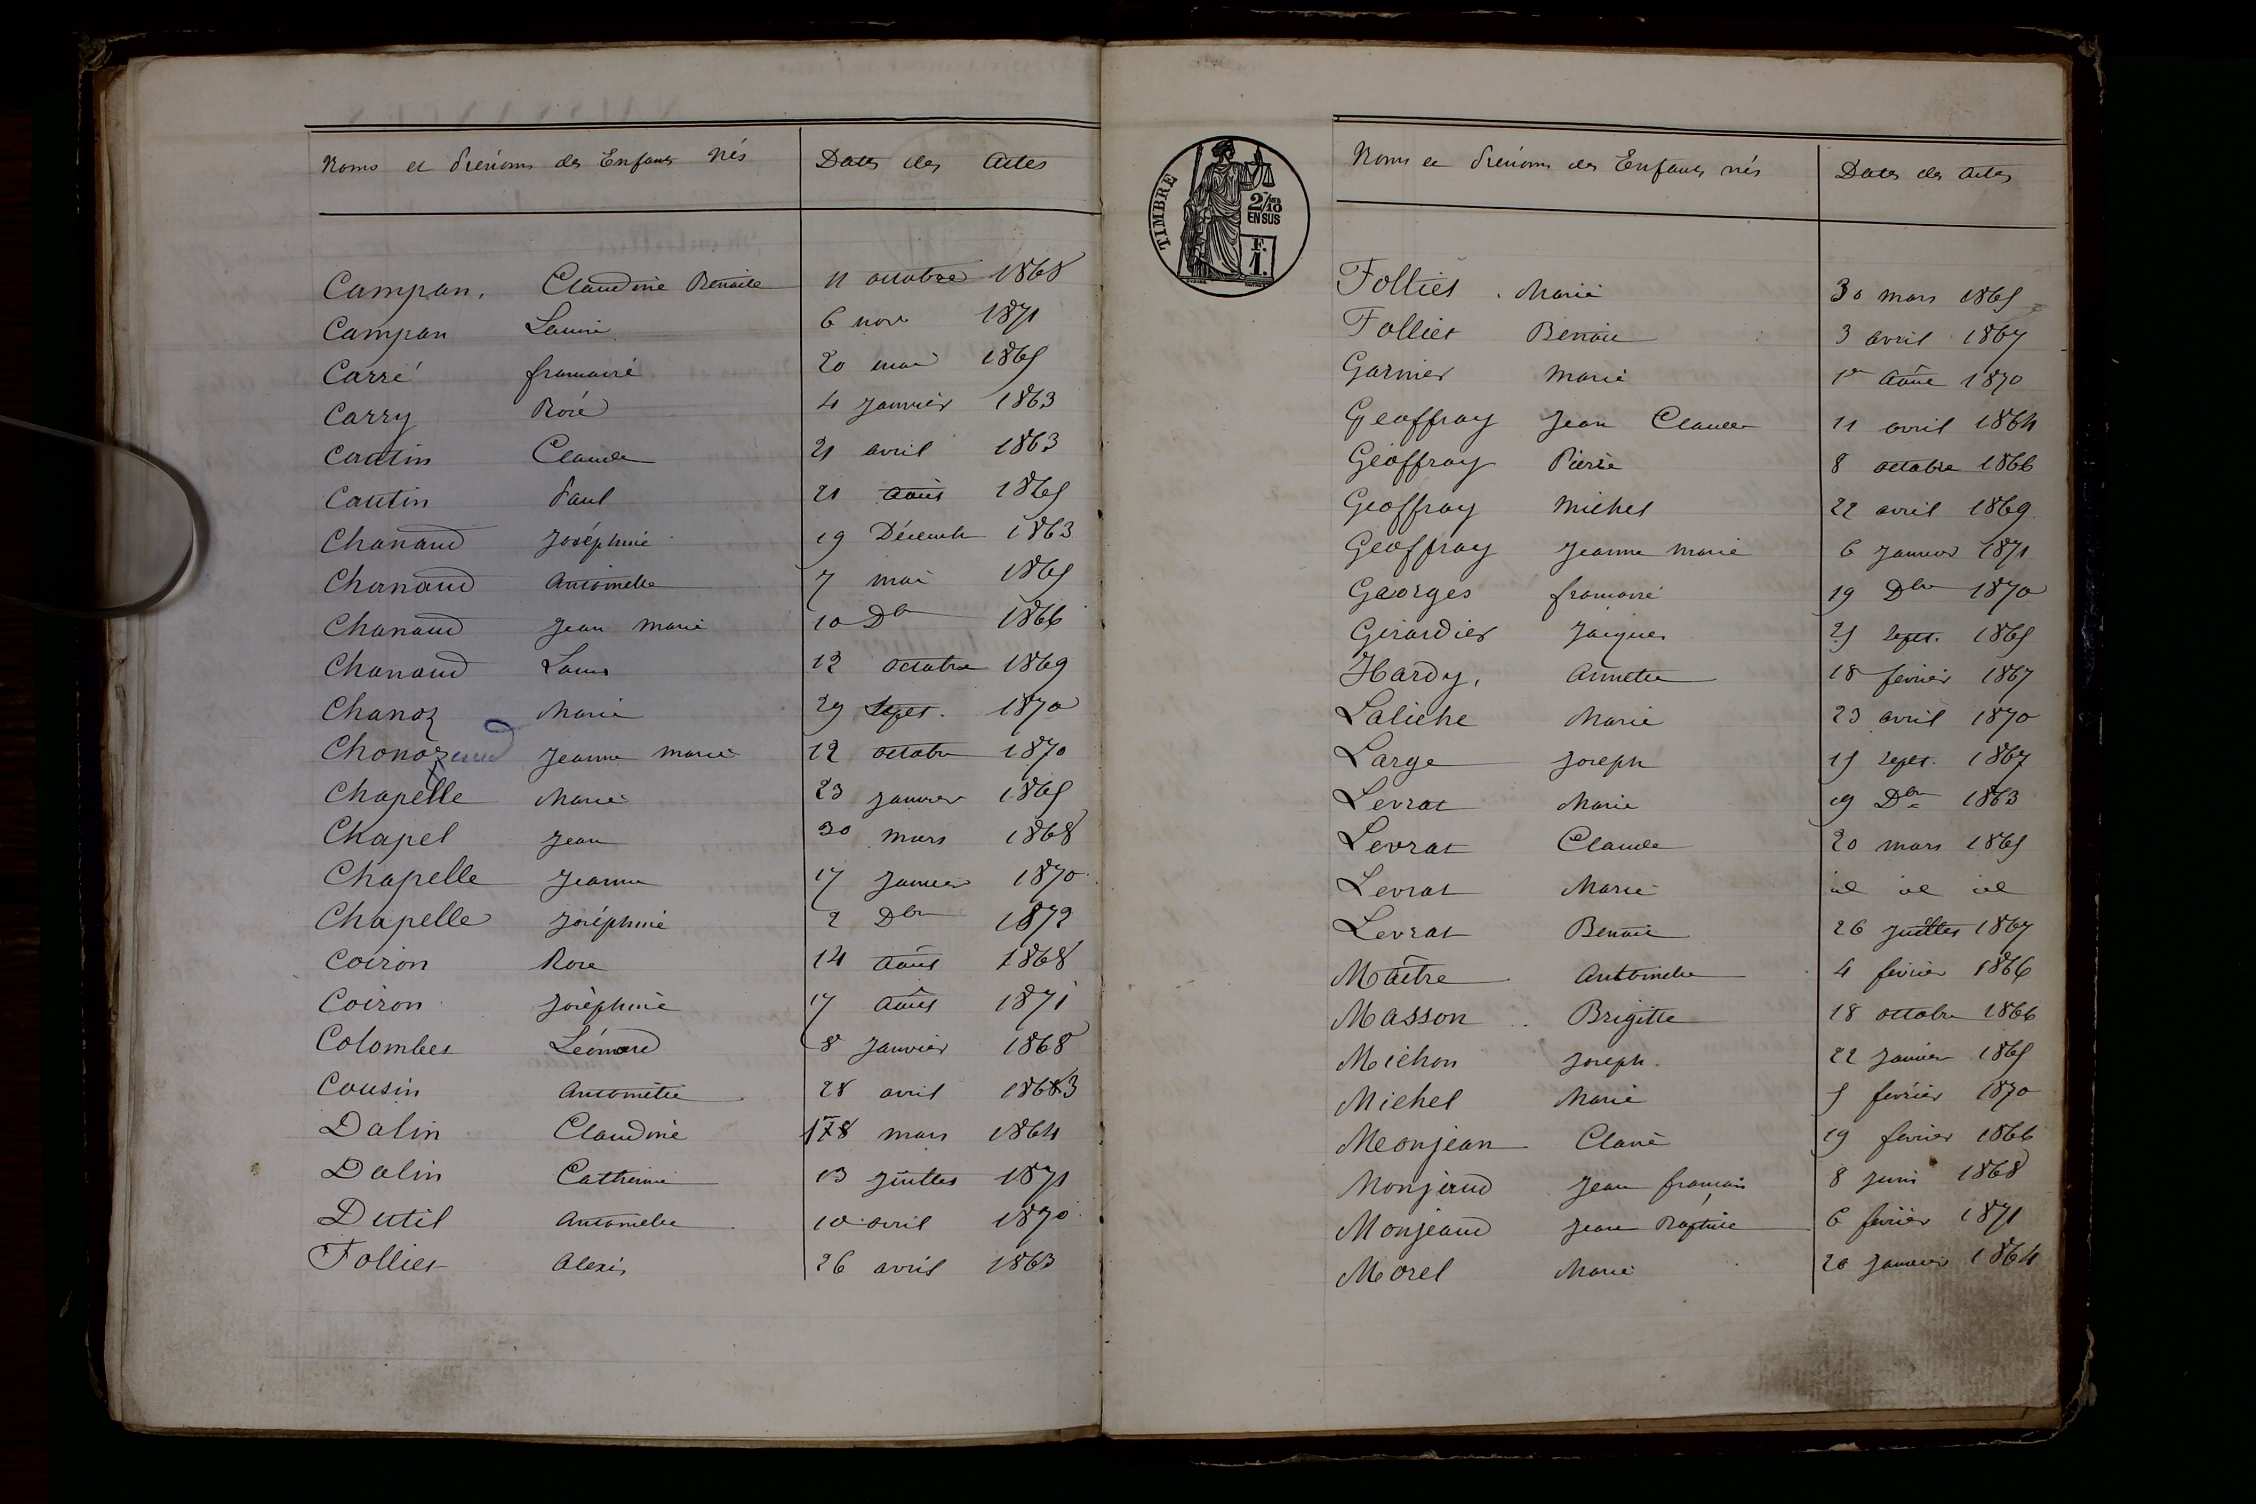 Noms et Prénoms des Enfants Nés Dates des Actes
Campan, Claudine Benoite 11 octobre 1868
Campan Laurie 6 nov 1871
Carré françoise 20 mai 1865
Carry Rose 4 Janvier 1863
Cautin Claude 21 avril 1863
Cautin Paul 21 Août 1865
Chanaud Joséphine 19 Décemb 1863
Chanaud Antoinette 7 mai 1865
Chanaud Jean Marie 10 Dbre 1866
Chanaud Louis 12 octobre 1869
Chanoz Marie 29 Sept. 1870
Chonoz Jeanne marie 12 octobre 1870
Chapelle Marie 23 janvier 1865
Chapel Jean 30 mars 1868
Chapelle Jeanne 17 Janvier 1870
Chapelle Joséphine 2 Dbre 1872
Coiron Rose 14 Août 1868
Coiron Joséphine 17 Août 1871
Colombet Léonard 8 Janvier 1868
Cousin Antoinette 28 avril 1863
Dalin Claudine 18 mars 1864
Dalin Catherine 13 Juillet 1871
Dutil Antoinette 10 avril 1870
Folliet Alexis 26 avril 1863
TIMBRE
2/10 EN SUS
F. 1.
Noms et Prénoms des Enfants nés Dates des Actes
Folliet Marie 30 mars 1865
Folliet Benoit 3 avril 1867
Garnier Marie 1er Août 1870
Geoffray Jean Claude 11 avril 1864
Géoffray Pierre 8 octobre 1866
Geoffray Michel 22 avril 1869
Geoffray Jeanne Marie 6 Janvier 1871
Georges françoise 19 Dbre 1870
Girardier Jacques 25 Sept. 1865
Hardy, Annette 18 février 1867
Laliche Marie 23 avril 1870
Large Joseph 15 Sept. 1867
Levrat Marie 19 Dbre 1863
Levrat Claude 20 mars 1865
Levrat Marie id id id
Levrat Benoit 26 Juillet 1867
Maître Antoinette 4 février 1866
Masson Brigitte 18 octobre 1866
Michon Joseph. 22 Janvier 1865
Michel Marie 5 février 1870
Meonjean Claire 19 février 1866
Monjeaud Jean françois 8 Juin 1868
Monjeaud Jean Baptiste 6 février 1871
Morel Marie 20 Janvier 1864